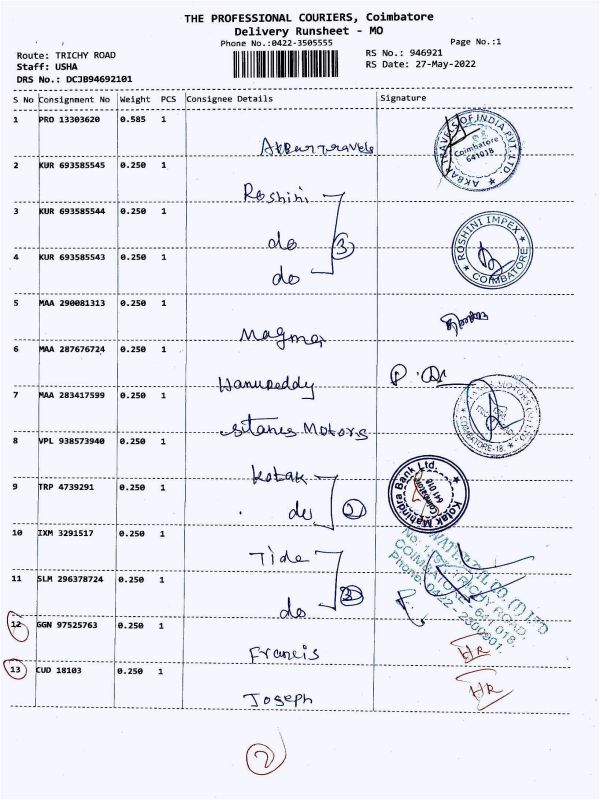 THE PROFESSIONAL COURIERS, Coimbatore
Delivery Runsheet - MO
Phone No.:0422-3505555
Page No.:1
Route: TRICHY ROAD
RS No.: 946921
Staff: USHA
RS Date: 27-May-2022
DRS No.: DCJB94692101
S No Consignment No Weight PCS Consignee Details Signature
1 PRO 13303620 0.585 1
Akbar travels
AKBAR TRAVELS OF INDIA PVT. LTD. Coimbatore 641018
2 KUR 693585545 0.250 1
Roshini
3 KUR 693585544 0.250 1
do 3
ROSHINI IMPEX COIMBATORE
4 KUR 693585543 0.250 1
do
5 MAA 290081313 0.250 1
Magma
6 MAA 287676724 0.250 1
Hanureddy
7 MAA 283417599 0.250 1
Stanes Motors
COIMBATORE-18.
8 VPL 938573940 0.250 1
Kotak
Kotak Mahindra Bank Ltd. Coimbatore 641 018
9 TRP 4739291 0.250 1
do 2
10 IXM 3291517 0.250 1
Tide
11 SLM 296378724 0.250 1
do
TRICHY ROAD
COIMBATORE - 641 018.
Phone: 0422 - 2300901
12 GGN 97525763 0.250 1
Francis HR
13 CUD 18103 0.250 1
Joseph HR
2